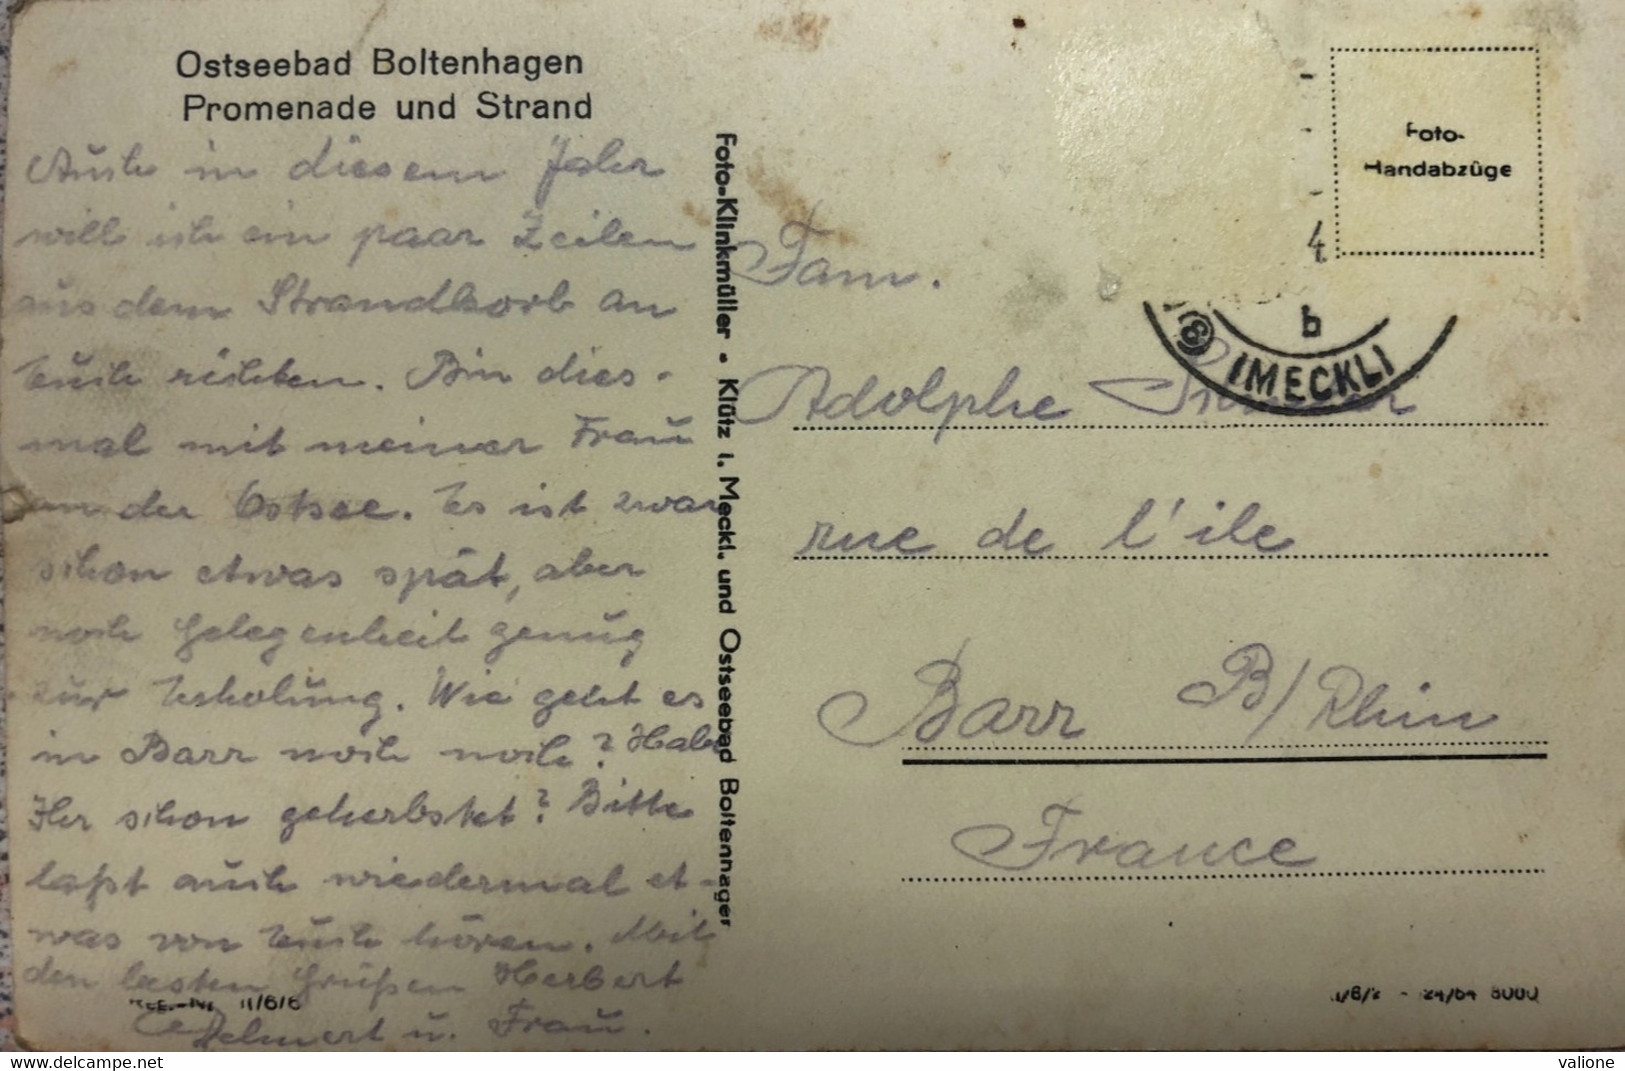 Ostseebad Boltenhagen
Promenade und Strand
Auch in diesem Jahr
will ich ein paar Zeilen
aus dem Strandkorb an
Euch richten. Bin dies-
mal mit meiner Frau
an der Ostsee. Es ist zwar
schon etwas spät, aber
noch Gelegenheit genug
zur Erholung. Wie geht es
in Barr noch noch? Habt
Ihr schon geherbstet? Bitte
laßt auch wiedermal et-
was von Euch hören. Mit
den besten Grüßen Herbert
u. Frau.
II/6/6
Foto-Klinkmüller • Klütz i. Meckl. und Ostseebad Boltenhagen
Foto-
Handabzüge
4
b
(MECKL)
Fam.
Adolphe
rue de l'ile
Barr B/Rhin
France
valione